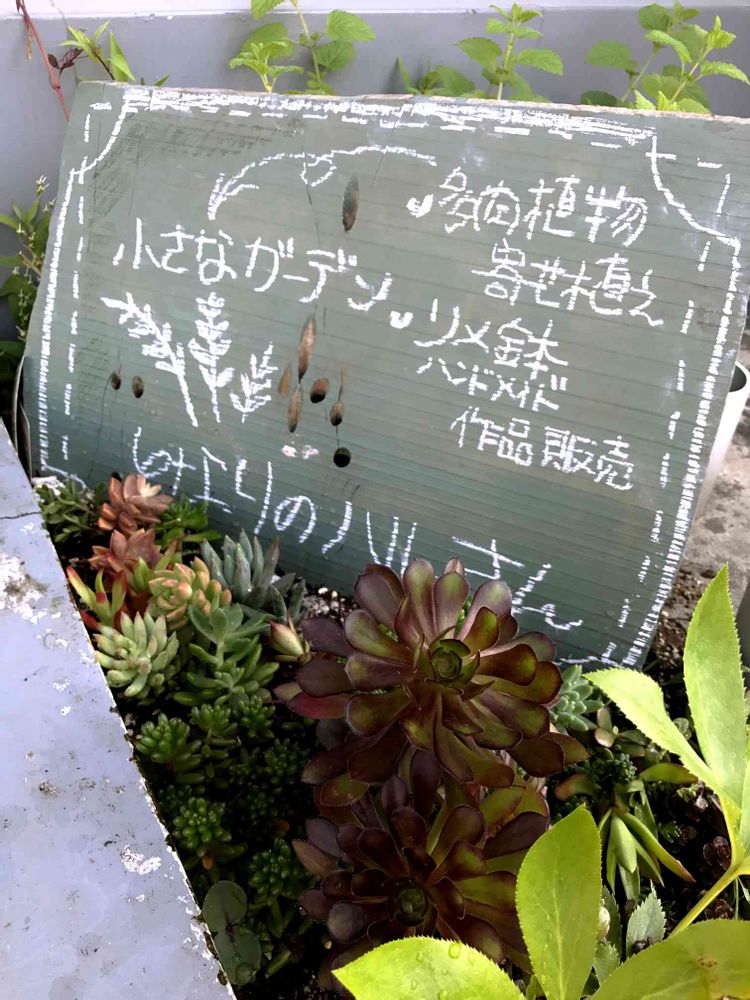 小さなガーデン
多肉植物
寄せ植え
リメ鉢
ハンドメイド
作品販売
みどりのハルさん